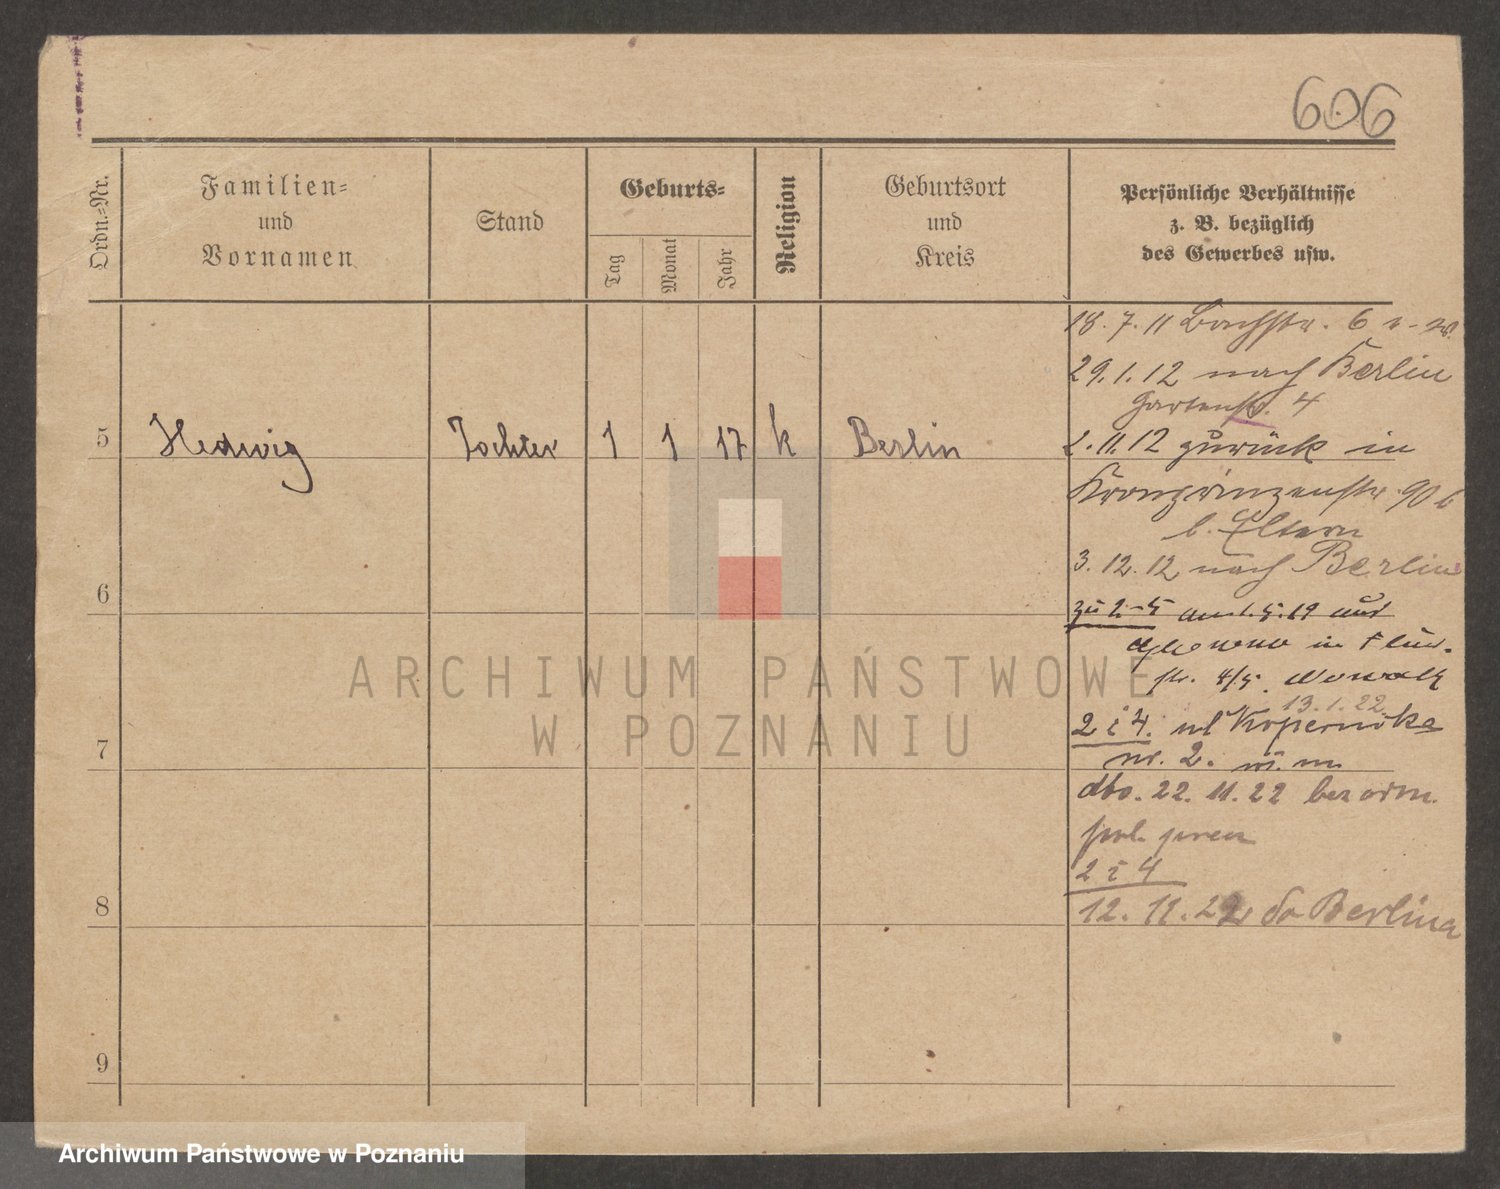 606
Ordn.=Nr.
Familien=
und
Vornamen
Stand
Geburts=
Tag
Monat
Jahr
Religion
Geburtsort
und
Kreis
Persönliche Verhältnisse
z. B. bezüglich
des Gewerbes usw.
18. 7. 11 Bachstr. 6
29. 1. 12 nach Berlin
Gartenstr. 4
5 Hedwig Tochter 1 1 17 k Berlin
2. 11. 12 zurück in
Kronprinzenstr. 90 b
b. Eltern
3. 12. 12 nach Berlin
6
zu 2-5 am 1. 5. 19 auf
in
str. 4/5
13. 1. 22
2 i 4. ul Kopernika
7
nr. 2.
dto. 22. 11. 22
2 i 4
8
12. 11. 22 do Berlina
9
ARCHIWUM PAŃSTWOWE
W POZNANIU
Archiwum Państwowe w Poznaniu